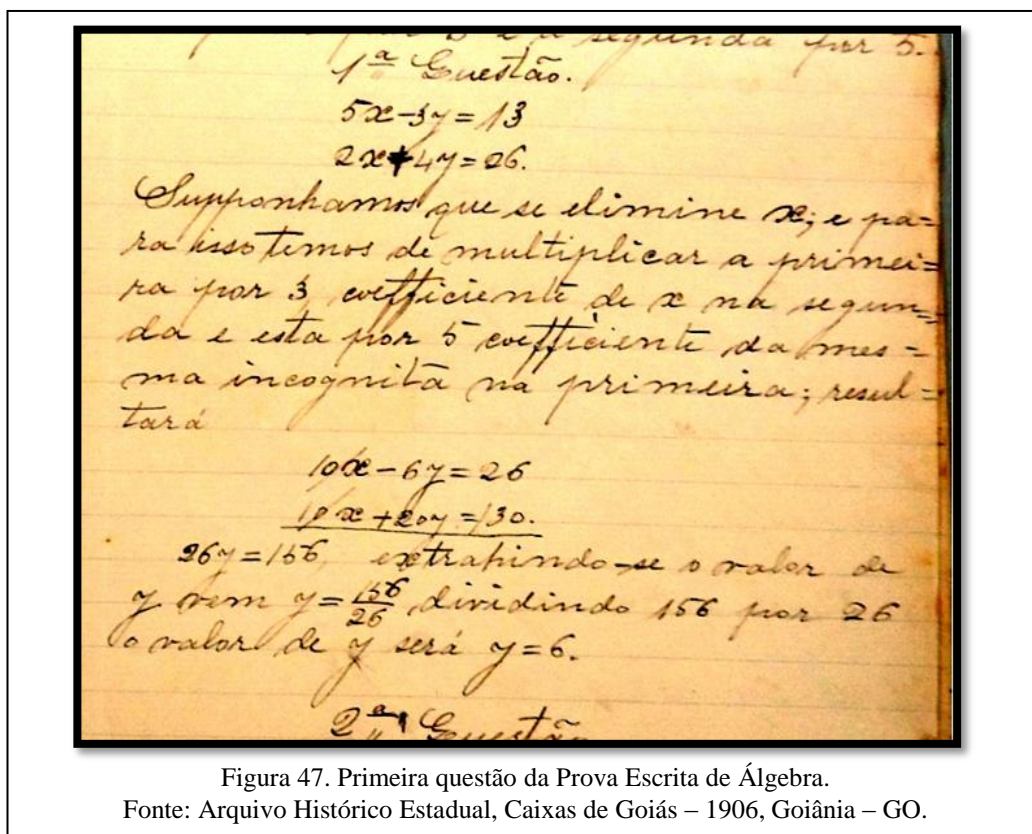 por 3 e a segunda por 5.
1ª Questão.
5x-3y=13
2x+4y=26.
Supponhamos que se elimine x; e pa=
ra isso temos de multiplicar a primei=
ra por 3, coefficiente de x na segun=
da e esta por 5 coefficiente da mes=
ma incognita na primeira; resul=
tará
10x-6y=26
10x+20y=130.
26y=156, extrahindo-se o valor de
y vem y=156/26, dividindo 156 por 26
o valor de y será y=6.
2ª Questão
Figura 47. Primeira questão da Prova Escrita de Álgebra.
Fonte: Arquivo Histórico Estadual, Caixas de Goiás – 1906, Goiânia – GO.